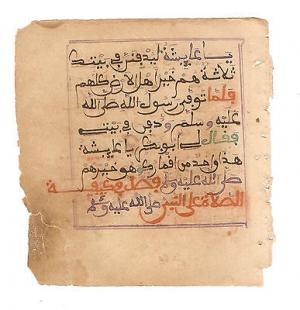 يا عايشة ليدفنن في بيتك
ثلاثة هم خير اهل الارض كلهم
فلما توفي رسول الله صلى الله
عليه وسلم ودفن في بيتي
قال لي ابو بكر يا عايشة
هذا واحد من اقمارك وهو خيرهم
صلى الله عليه وسلم فصل في كيفية
الصلاة على النبي صلى الله عليه وسلم